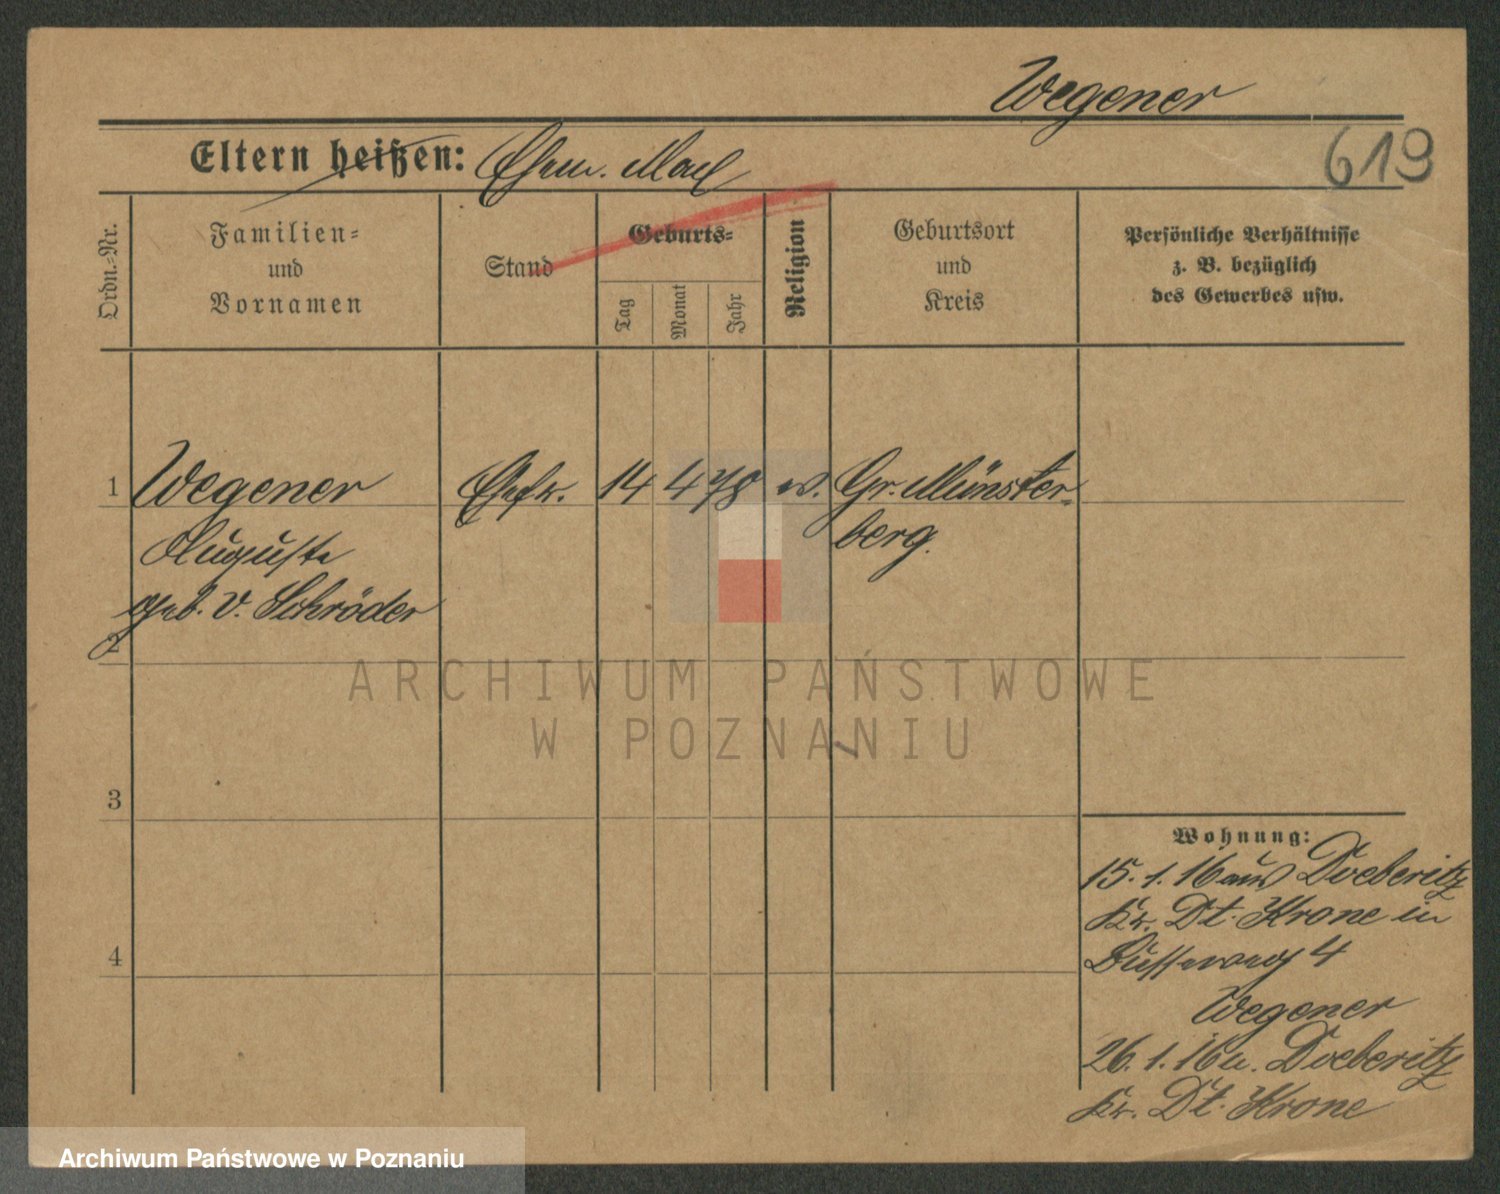 Wegener
Eltern heißen: Ehem. Max
619
Ordn.-Nr.
Familien-
und
Vornamen
Stand
Geburts-
Tag
Monat
Jahr
Religion
Geburtsort
und
Kreis
Persönliche Verhältnisse
z. B. bezüglich
des Gewerbes usw.
1 Wegener Ehefr. 14 4 78 ev. Gr. Münster-
Auguste berg.
geb. v. Schröder
2
ARCHIWUM PAŃSTWOWE
W POZNANIU
3
Wohnung:
15.1.16 aus Doeberitz
Kr. Dt. Krone in
4
Wegener
26.1.16 n. Doeberitz
Kr. Dt. Krone
4
Archiwum Państwowe w Poznaniu